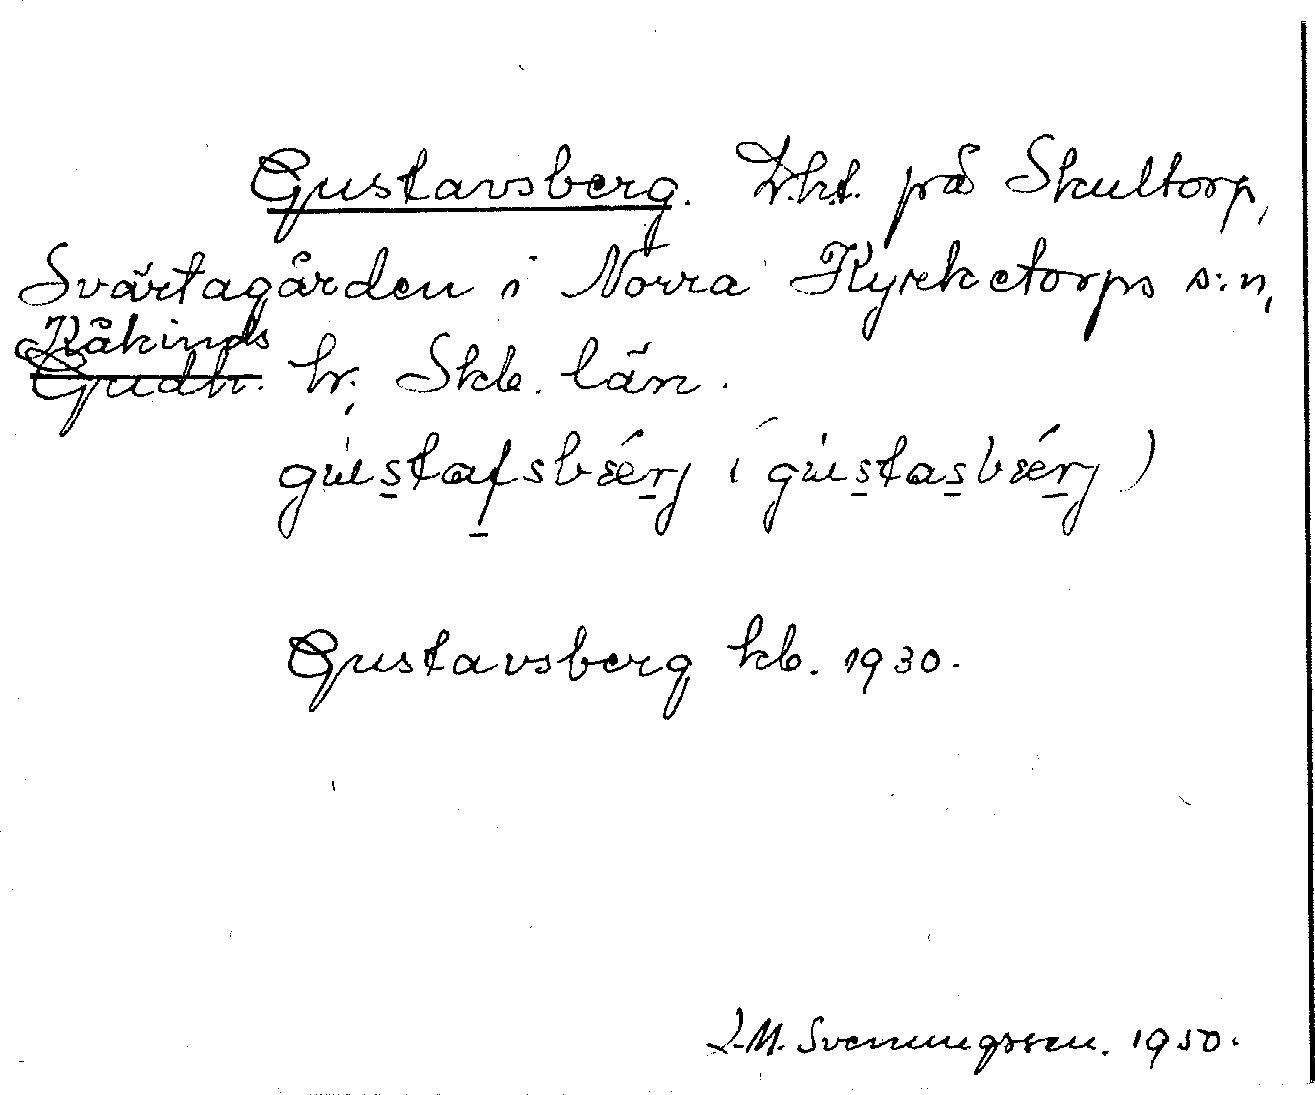 Gustavsberg. Lht. på Skultorp,
Svärtagården i Norra Kyrketorps s:n,
Kåkinds
Gudh. hr, Skb. län.
gùstafsbærj (gùstasbærj)
Gustavsberg kb. 1930.
L.M. Svenungsson. 1950.